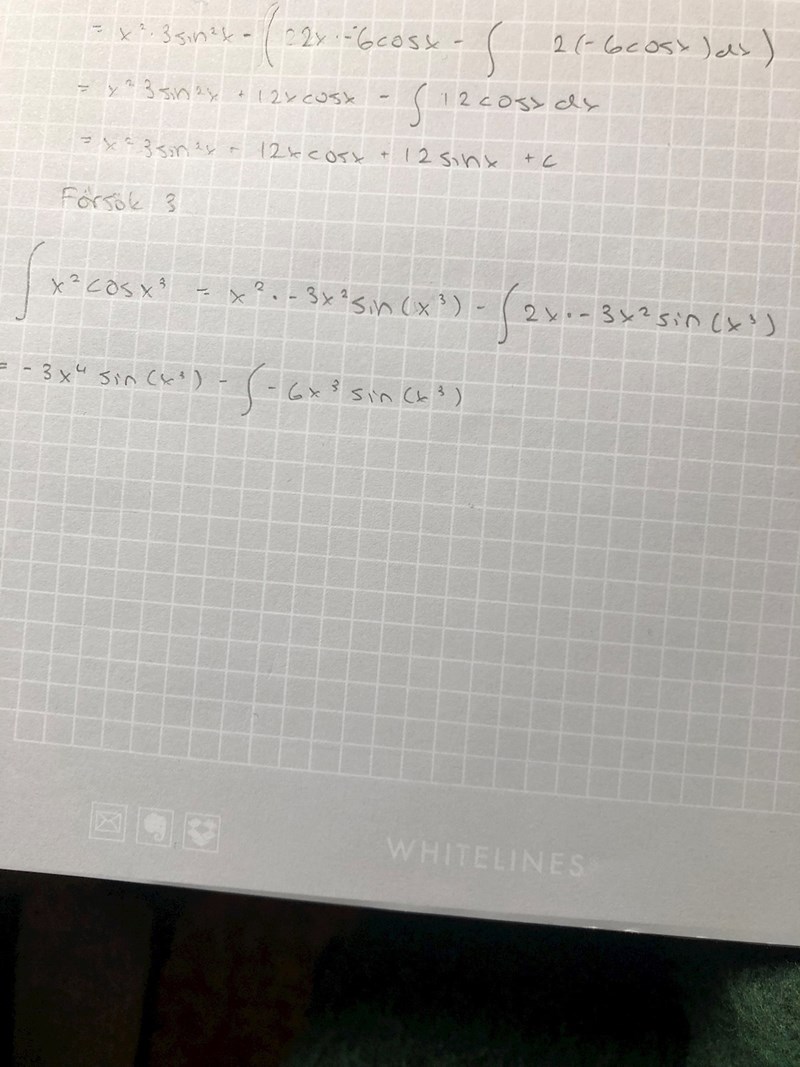 = x² · 3sin²x - ( 22x · -6cosx - ∫ 2(-6cosx)dx )
= x² 3sin²x + 12xcosx - ∫ 12cosx dx
= x² 3sin²x + 12xcosx + 12sinx + c
Försök 3
∫ x²cosx³ = x² · -3x²sin(x³) - ∫ 2x · -3x²sin(x³)
= -3x⁴ sin(x³) - ∫ -6x³ sin(x³)
WHITELINES®